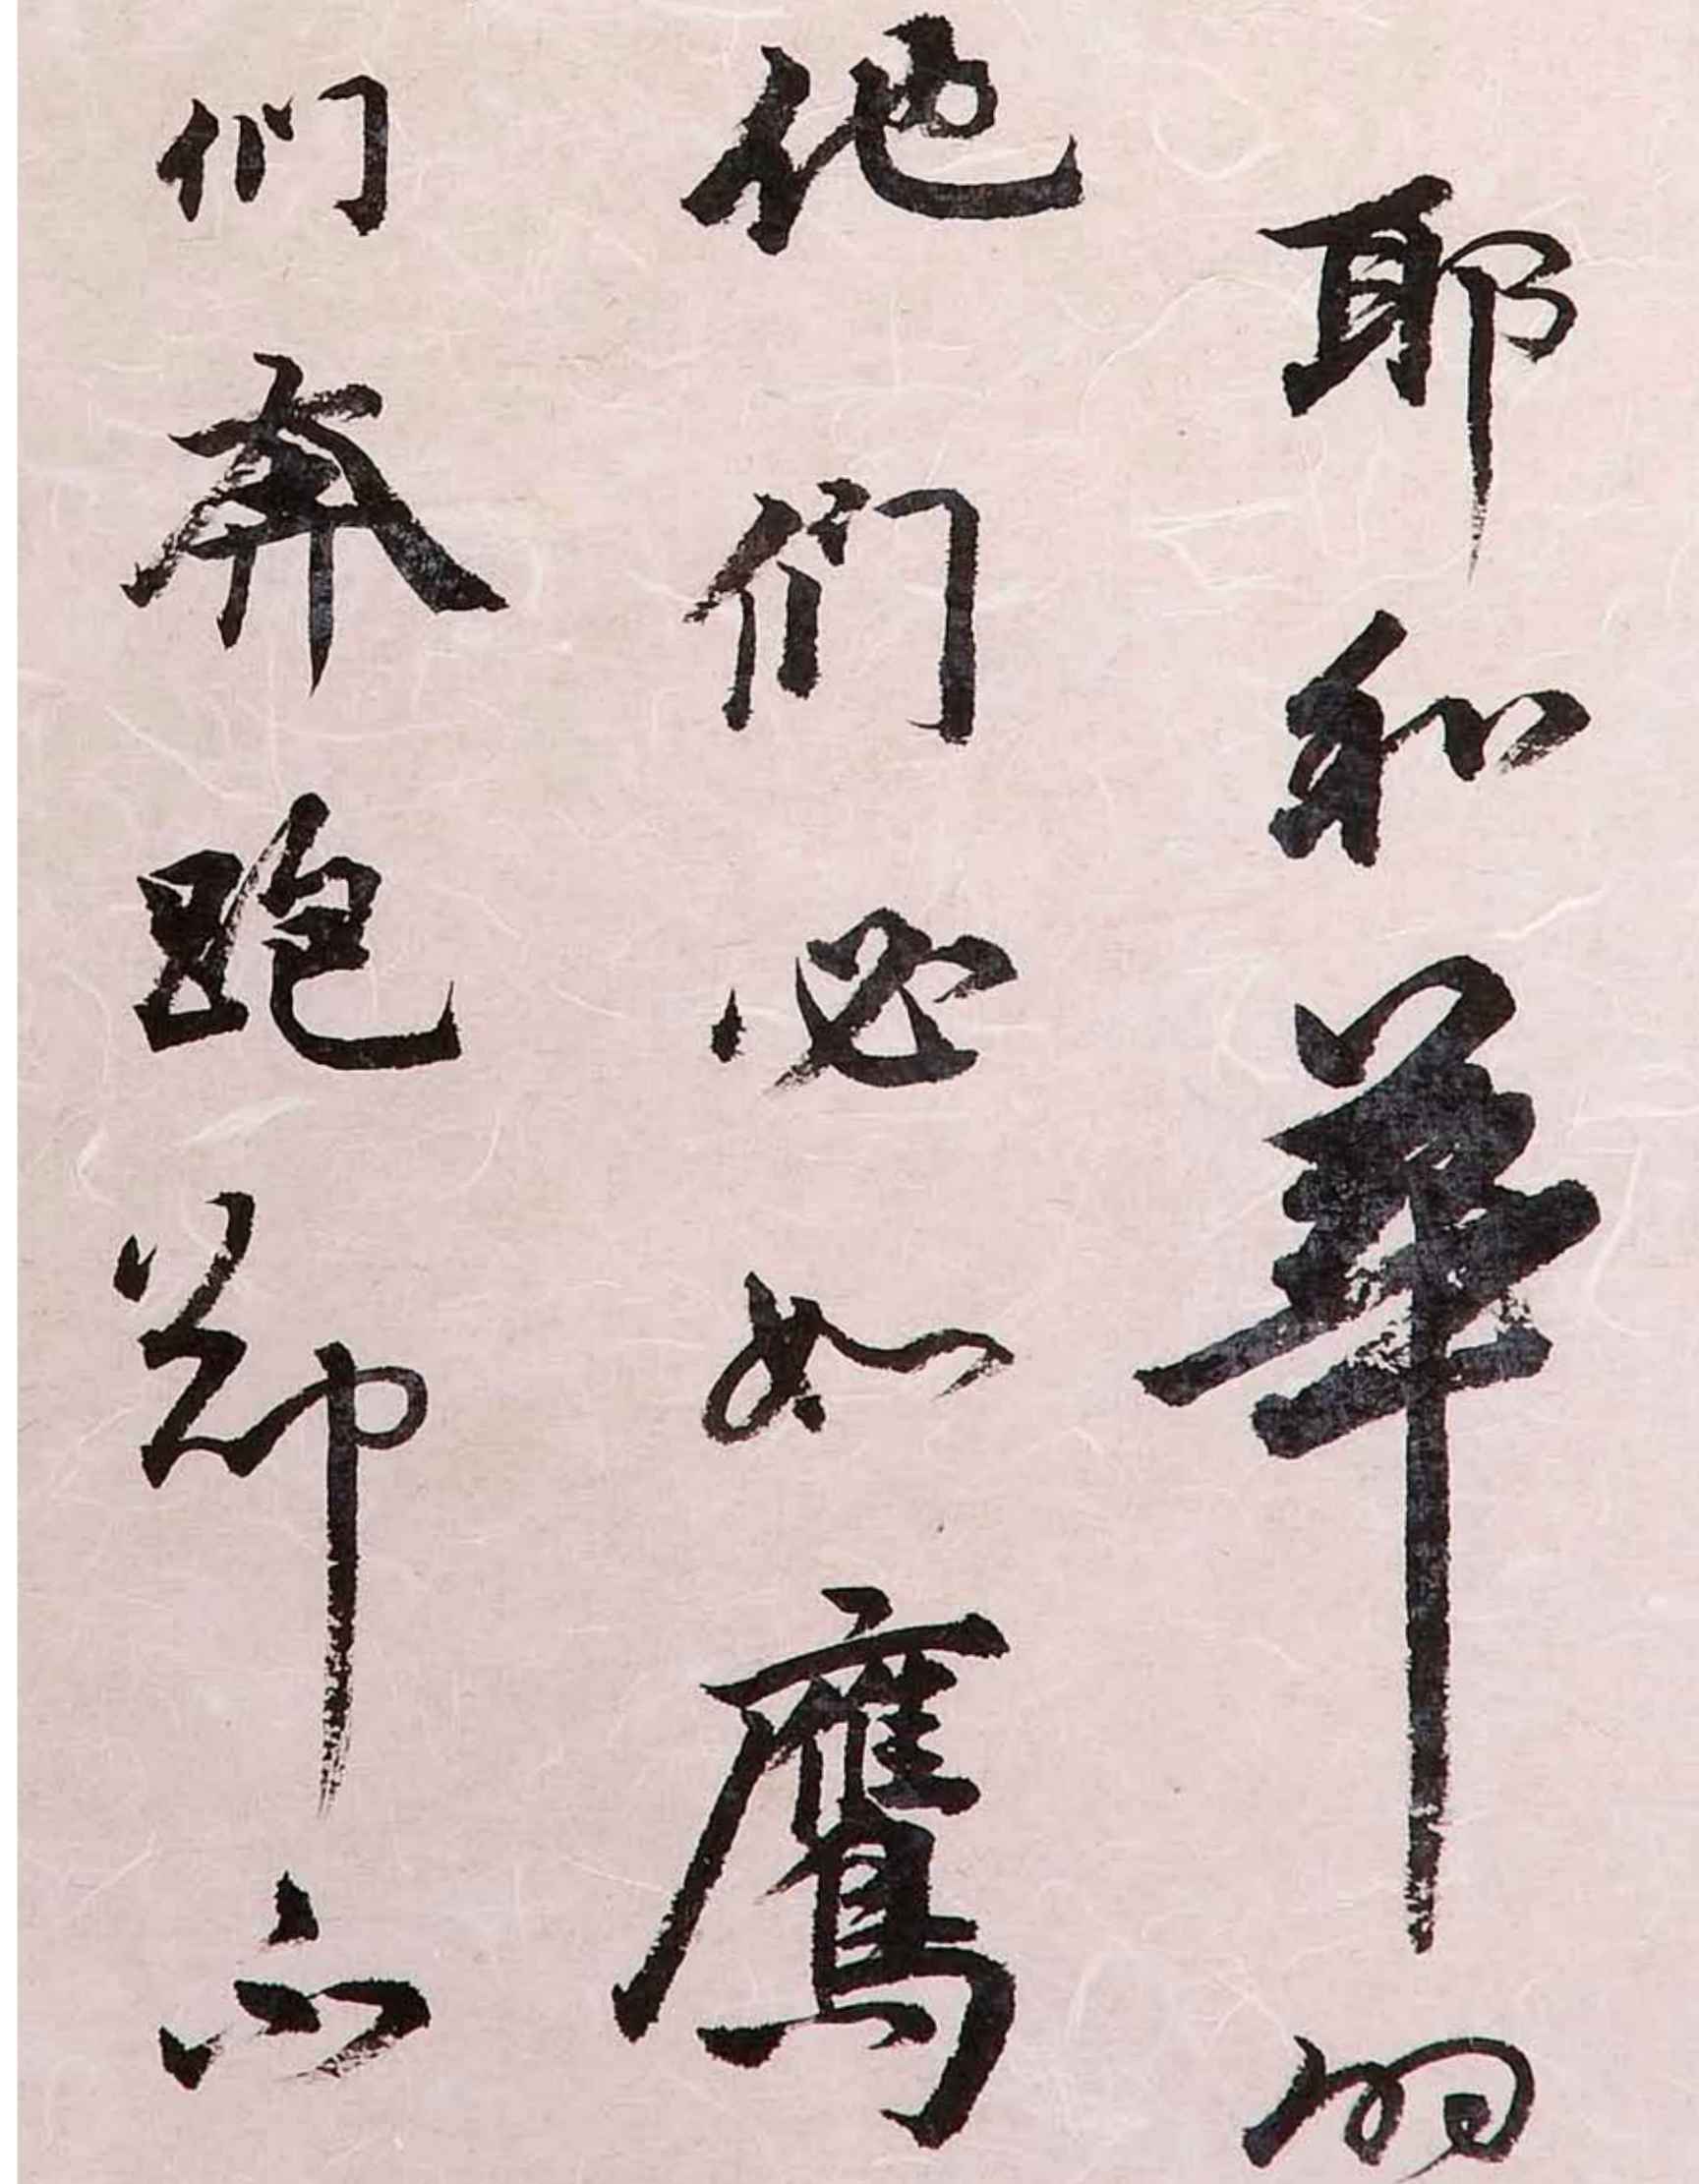 耶和華的
他们必如鹰
们奔跑却不